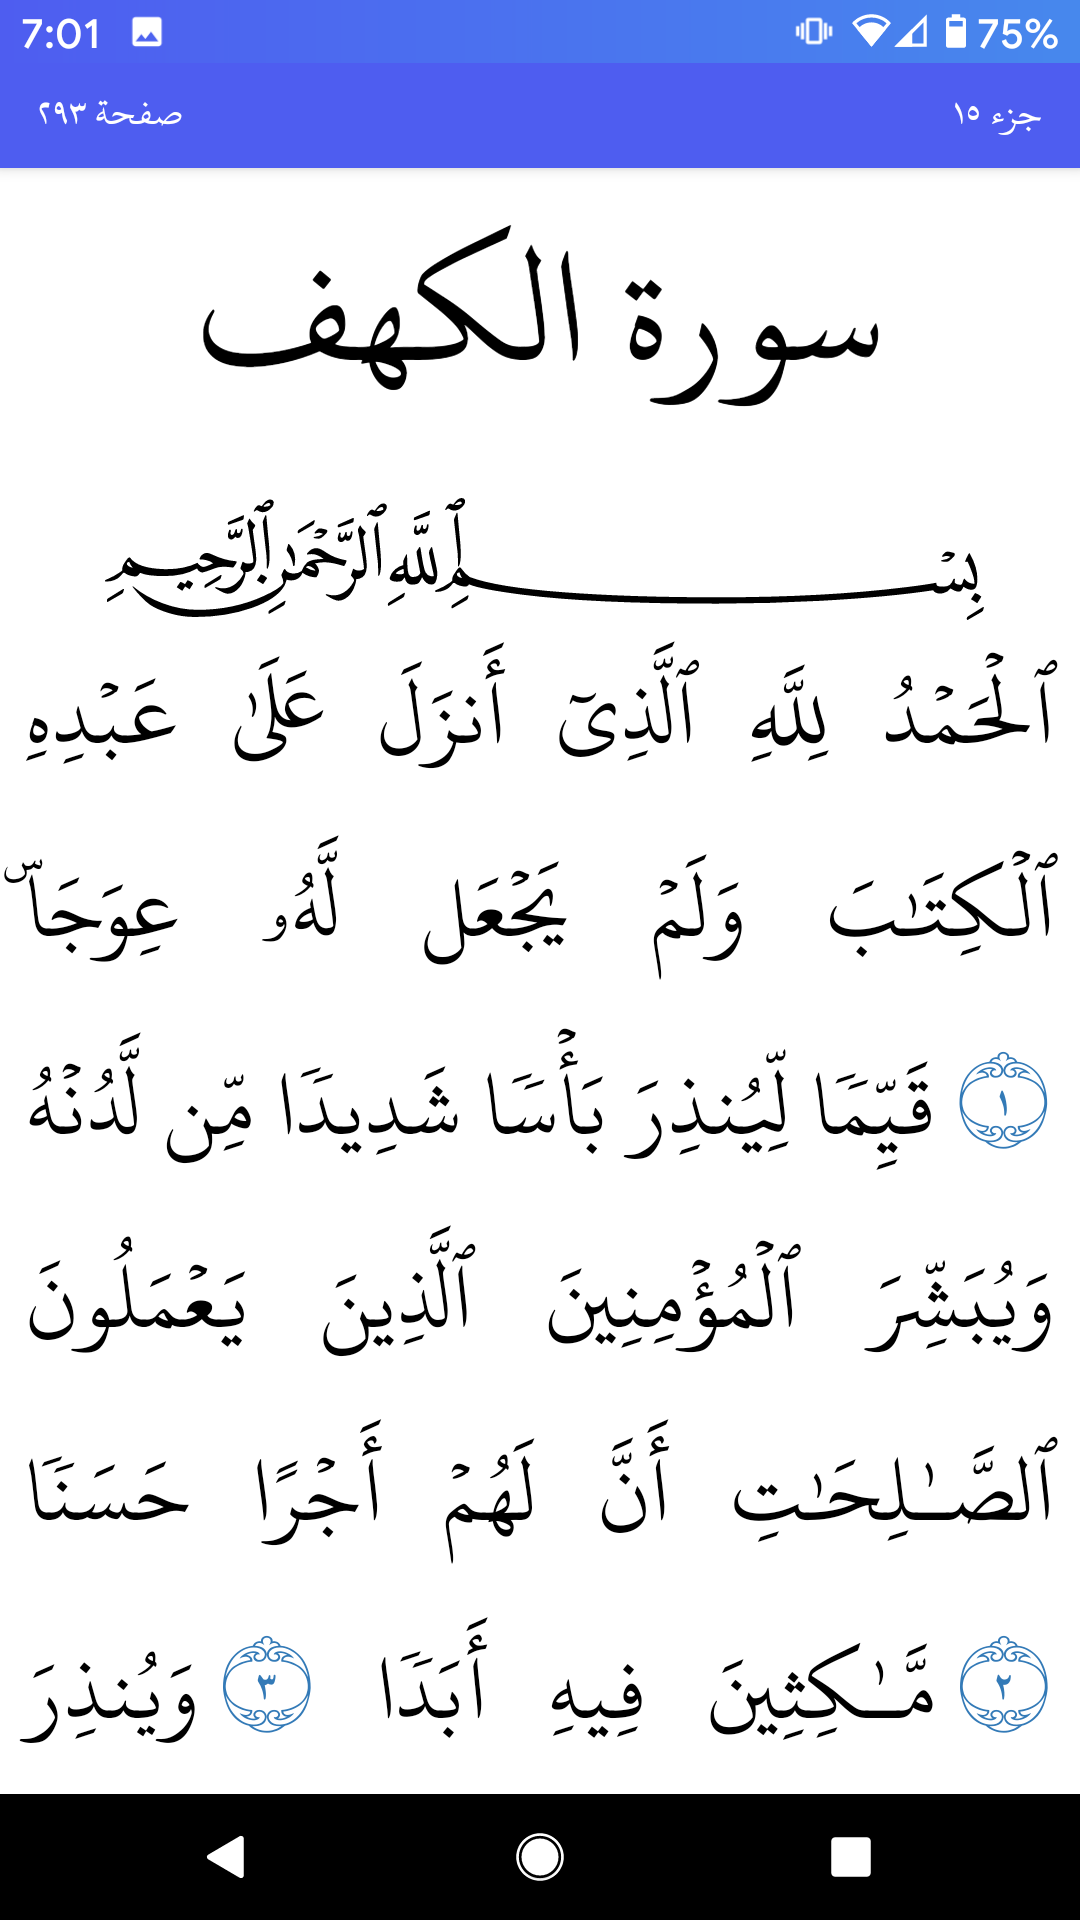 7:01 75%
جزء ١٥ صفحة ٢٩٣
سورة الكهف
بِسۡمِ ٱللَّهِ ٱلرَّحۡمَٰنِ ٱلرَّحِيمِ
ٱلۡحَمۡدُ لِلَّهِ ٱلَّذِيٓ أَنزَلَ عَلَىٰ عَبۡدِهِ
ٱلۡكِتَٰبَ وَلَمۡ يَجۡعَل لَّهُۥ عِوَجَاۜ
١ قَيِّمٗا لِّيُنذِرَ بَأۡسٗا شَدِيدٗا مِّن لَّدُنۡهُ
وَيُبَشِّرَ ٱلۡمُؤۡمِنِينَ ٱلَّذِينَ يَعۡمَلُونَ
ٱلصَّٰلِحَٰتِ أَنَّ لَهُمۡ أَجۡرًا حَسَنٗا
٢ مَّٰكِثِينَ فِيهِ أَبَدٗا ٣ وَيُنذِرَ